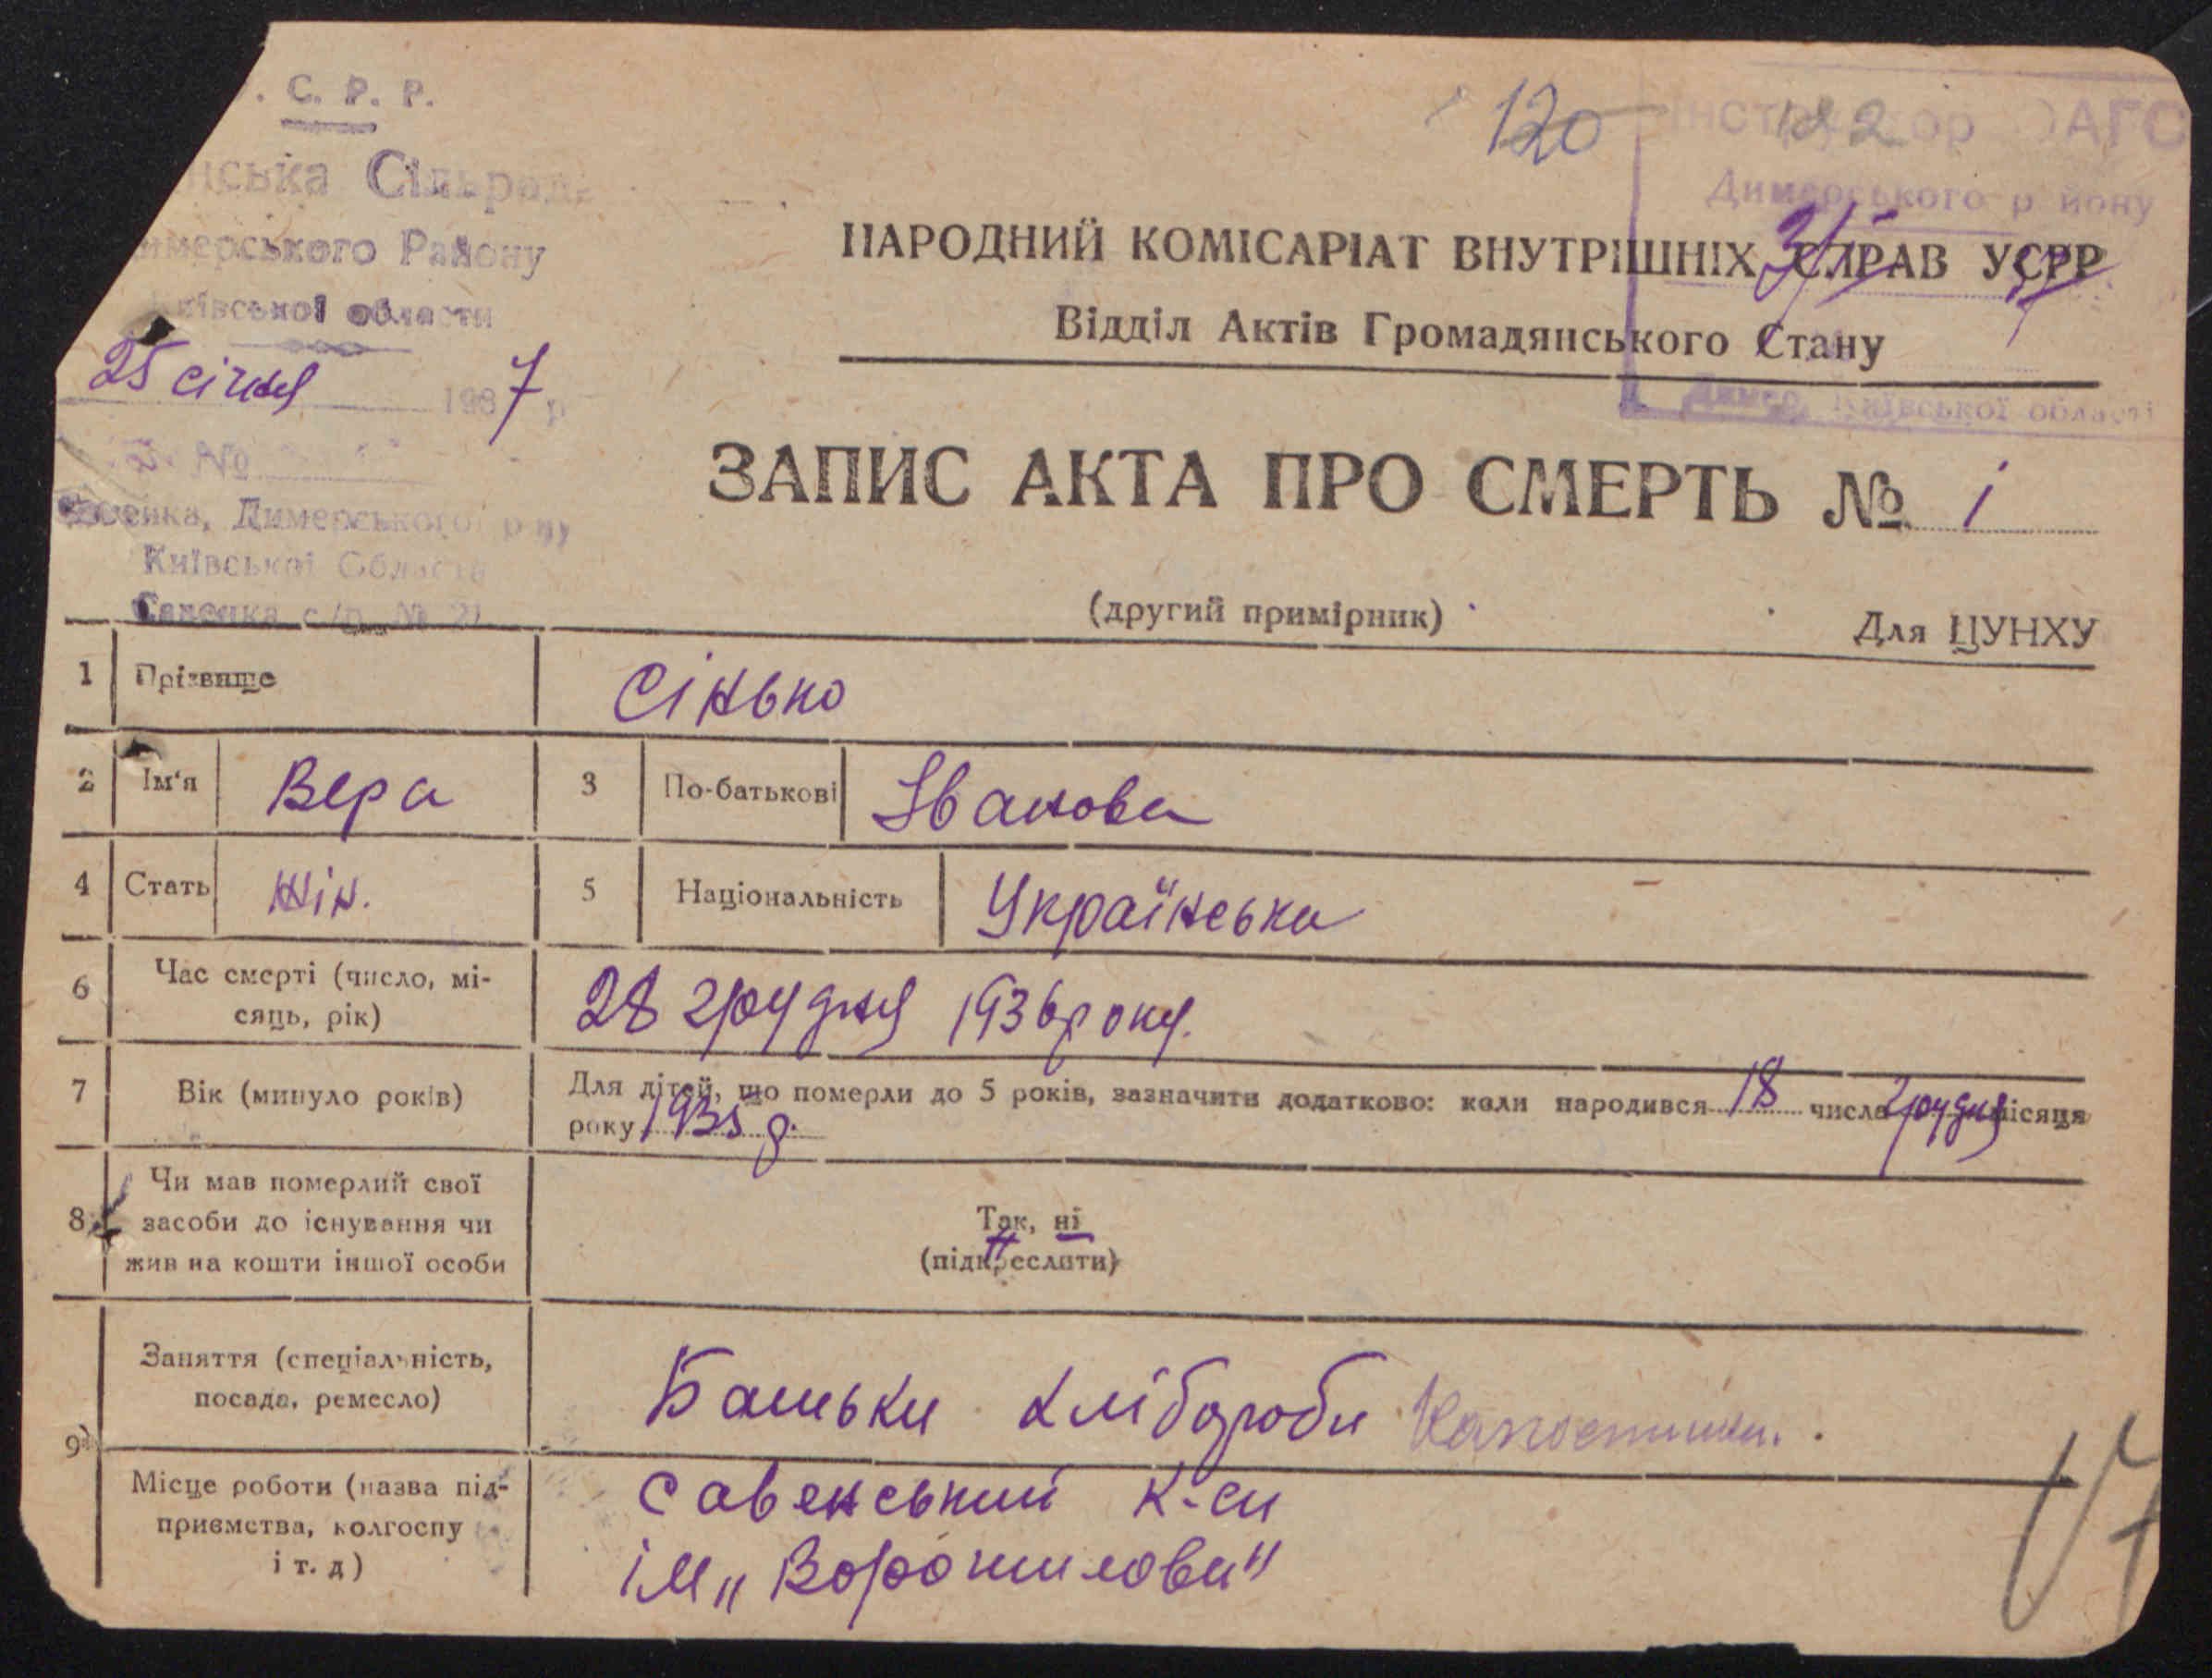 . С. Р. Р.
нська Сільрада
имерського Району
Київської области
25 січня 1937 р
№
Савенка, Димерського р ну
Київської Області
Савенка с/р № 21
120
182
Інструктор ЗАГС
Димерського р йону
3/І 7
Димер, Київської області
НАРОДНИЙ КОМІСАРІАТ ВНУТРІШНІХ СПРАВ УСРР
Відділ Актів Громадянського Стану
ЗАПИС АКТА ПРО СМЕРТЬ № 1
(другий примірник)
Для ЦУНХУ
1 Прізвище Сінько
2 Ім'я Вера 3 По-батькові Іванова
4 Стать жін. 5 Національність Українська
6 Час смерті (число, мі-
сяць, рік) 28 грудня 1936 року.
7 Вік (минуло років) Для дітей, що померли до 5 років, зазначити додатково: коли народився 18 числа грудня місяця
року 1935 р.
8 Чи мав померлий свої
засоби до існування чи
жив на кошти іншої особи
Так, ні
(підкреслити)
9 Заняття (спеціальність,
посада, ремесло) Батьки хлібороби
Місце роботи (назва під-
приємства, колгоспу
і т. д) Савенський к-сп
ім „Ворошилова"